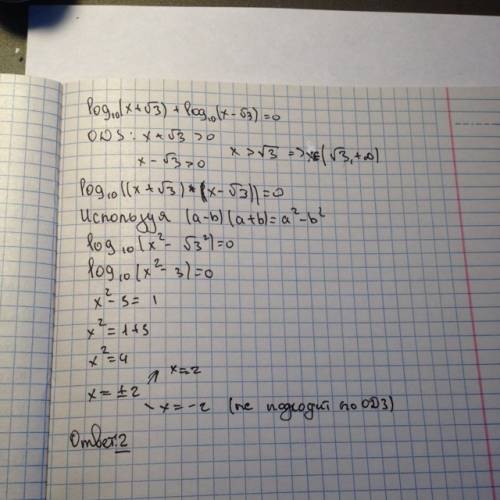 log₁₀(x+√3)+log₁₀(x-√3)=0
ОДЗ: x+√3>0
x-√3>0 x>√3 => x∈(√3,+∞)
log₁₀((x+√3)*(x-√3))=0
Используя (a-b)(a+b)=a²-b²
log₁₀(x²-√3²)=0
log₁₀(x²-3)=0
x²-3=1
x²=1+3
x²=4
x=2
x=±2
x=-2 (не подходит по ОДЗ)
Ответ: 2